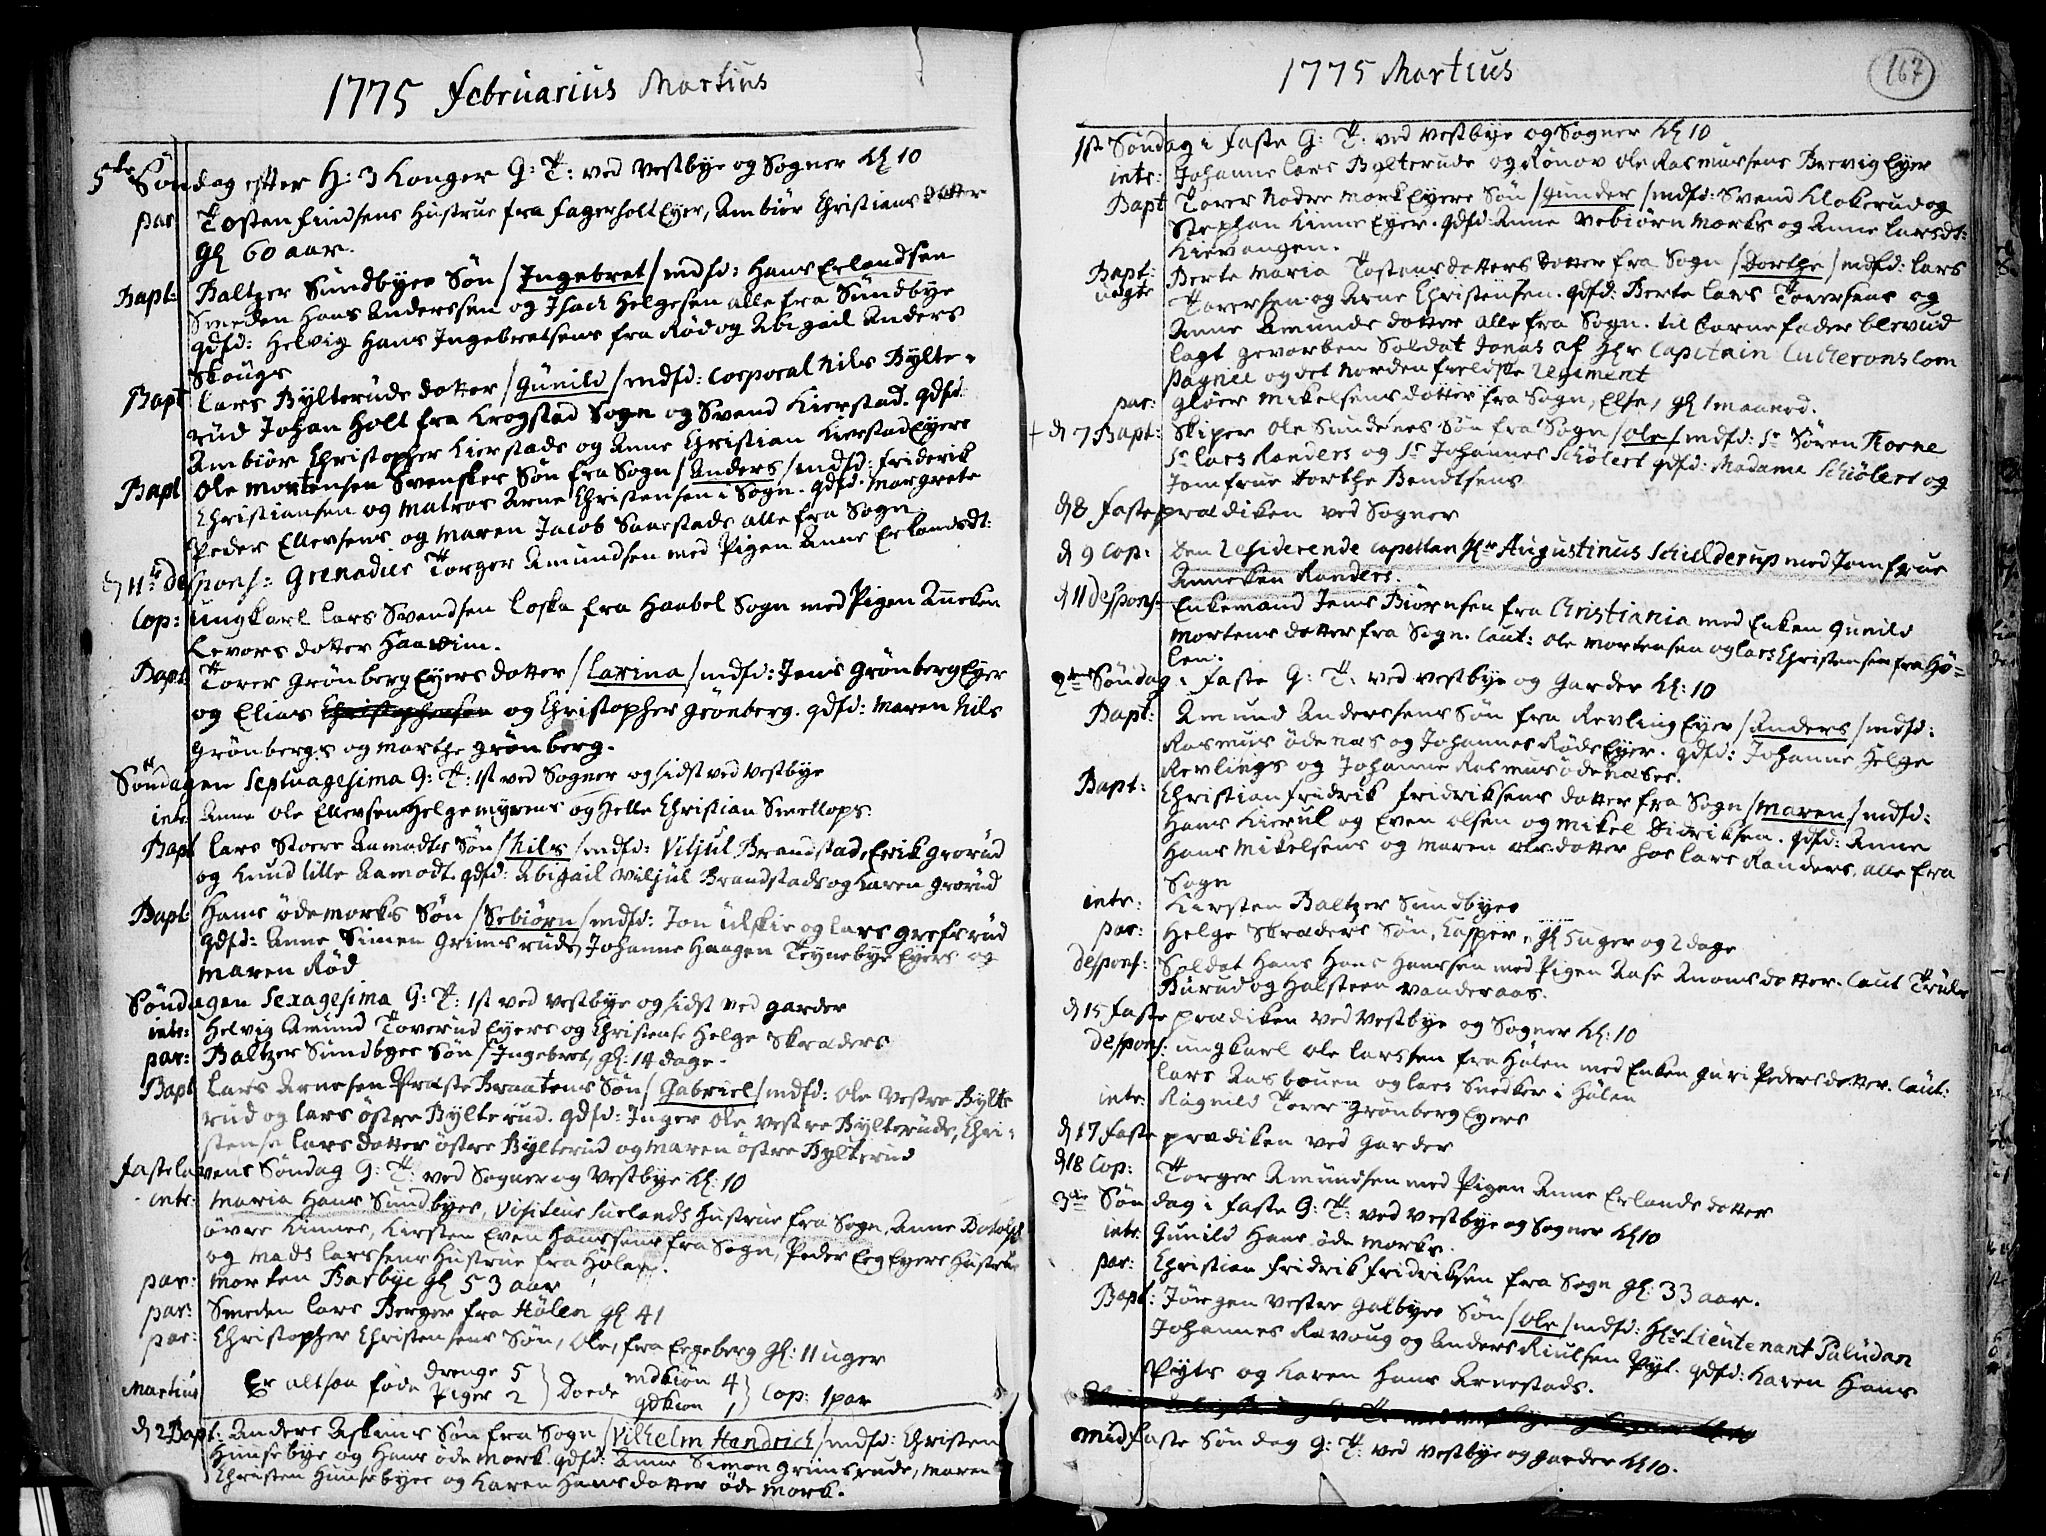 1775 Februarius Martius
5te Söndag efter H: 3 Konger G: T: ved Vestbye og Sogner Kl 10
par Tosten Findsens Hustrue fra Fagerholt Eyer, Ambiör Christians Dotter
gl 60 aar.
Bapt: Baltzer Sundbyes Sön / Ingebret / mdfd: Hans Erlandsen
Smeden Hans Anderssen og Isach Helgesen alle fra Sundbye
qdfd: Helvig Hans Ingebretsens fra Röd og Abigail Anders
Skougs
Bapt Lars Bylterude dotter / Gunild / mdfd: Corporal Nils Bylte-
rud Johan Holt fra Krogstad Sogn og Svend Kierstad. qdfd
Ambiör Christopher Kierstads og Anne Christian Kierstad Eyers
Bapt Ole Mortensen Svenskes Sön fra Sogn / Anders / mdfd: Friderik
Christiansen og Matros Arne Christensen i Sogn. qdfd: Margrete
Peder Ellevsens og Maren Jacob Saarstads alle fra Sogn.
d 11te Despons: Grenadier Torger Amundsen med Pigen Anne Erlandsdt:
Cop: ungkarl Lars Svendsen Loska fra Haabel Sogn med Pigen Anneken
Levors dotter Haavim.
Bapt: Torer Grönberg Eyers dotter / Larina / mdfd: Jens Grönberg Eyer
og Elias Christophersen og Christopher Grönberg. qdfd: Maren Nils
Grönbergs og Marthe Grönberg.
Söndagen Septuagesima G: T: 1st ved Sogner og sidst ved Vestbye
intr: Anne Ole Ellevsen Helgemyrens og Helle Christian Smettops.
Bapt Lars Store Aamodts Sön / Nils / mdfd: Viljul Brandstad, Erik Grorud
og Knud Lille Aamodt. qdfd: Abigail Viljul Brandstads og Karen Grorud
Bapt: Hans Ödemorks Sön / Sebiörn / mdfd: Jon Ulskie og Lars Grefsrud
qdfd: Anne Simen Grimsruds, Johanne Haagen Teynebye Eyers og
Maren Röd
Söndagen Sexagesima G: T: 1st ved Vestbye og sidst ved Garder
intr: Helvig Amund Toverud Eyers og Christense Helge Skraders
par: Baltzer Sundbyes Sön / Ingebret, gl: 14 dage.
Bapt Lars Arnesen Præste Braatens Sön / Gabriel / mdfd: Ole Vestre Bylte
rud og Lars östre Bylterud. qdfd: Inger Ole Vestre Bylterude, Chri-
stense Lars dotter östre Bylterud og Maren östre Bylterud
Fastelavens Söndag G: T: ved Sogner og Vestbye Kl: 10
intr: Maria Hans Sundbyes, Visiteur Hustrue fra Sogn, Anne
övre Kinnes, Kirsten Even Hanssens fra Sogn, Peder Eeg Eyers Hustrue
og Mads Larssens Hustrue fra Hölen.
par: Morten Barbye gl 53 aar
par: Smeden Lars Berger fra Hölen gl 41
par: Christopher Christensens Sön, Ole, fra Eegeberg gl: 11 uger
Er altsaa föde drenge 5 Piger 2 } Döede mdkiön 4 qdkiön 1 } Cop: 1 par
Martius
d 2 Bapt: Anders Askims Sön fra Sogn / Vilhelm Hendrich / mdfd: Christen
Hunsebye og Hans öde Mork. qdfd: Anne Simon Grimsrude, Maren
Christen Hunsebyes og Karen Hans dotter öde Mork.
1775 Martius
167
1ste Söndag i Faste G: T: ved Vestbye og Sogner Kl 10
intr: Johanne Lars Bylterude og Rönov Ole Rasmussens Brevig Eyer
Bapt Torer Nodre Mork Eyers Sön / Gunder / mdfd: Svend Klokerud og
Stephan Kinne Eyer. qdfd: Anne Vebiörn Morks og Anne Larsdt:
Kiervangen.
Bapt: Berte Maria Tostensdotters Dotter fra Sogn / Dorthe / mdfd: Lars
uægte Torersen og Arne Christensen. qdfd: Berte Lars Torersens og
Anne Amunds dotter alle fra Sogn. til Barnefader blev ud
lagt gevorben Soldat Jonas af Hr Capitain Com
pagnie og det Nordenfieldske Regiment
par: Glöer Mikelsens dotter fra Sogn, Else, gl 1 maaned.
d 7 Bapt: Skiper Ole Sundenes Sön fra Sogn / Ole / mdfd: Sr Sören Horne
Sr Lars Randers og Sr Johannes Schölert qdfd: Madame Schiölert og
Jomfrue Dorthe Bendtsens
d 8 Fasteprædiken ved Sogner
d 9 Cop: Den Residerende Capellan Hr Augustinus Schielderup med Jomfrue
Anneken Randers.
d 11 Despons: Enkemand Jens Biörnsen fra Christiania med Enken Gunild
Mortens dotter fra Sogn. Caut: Ole Mortensen og Lars Christensen fra Hö-
len.
2den Söndag i Faste G: T: ved Vestbye og Garder Kl: 10
Bapt: Amund Anderssens Sön fra Revling Eyer / Anders / mdfd:
Rasmus ödenæs og Johannes Röds Eyer. qdfd: Johanne Helge
Revlings og Johanne Rasmus ödenæses.
Bapt: Christian Fridrik Fridriksens dotter fra Sogn / Maren / mdfd:
Hans Kierul og Even Olsen og Mikel Didriksen. qdfd: Anne
Hans Mikelsens og Maren Olsdotter hos Lars Randers, alle fra
Sogn
intr: Kirsten Baltzer Sundbyes
par: Helge Skraders Sön, Casper, gl 5 uger og 2 dage
despons: Soldat Hans Hans Hanssen med Pigen Aase Amons dotter. Caut Truls
Burud og Halsteen Vanderaas.
d 15 Fasteprædiken ved Vestbye og Sogner Kl: 10
despons: ungkarl Ole Larssen fra Hölen med Enken Guri Pedersdotter. Caut:
Lars Aasbouen og Lars Snedker i Hölen
intr: Ragnild Torer Grönberg Eyers
d 17 Faste prædiken ved Garder
d 18 Cop: Torger Amundsen med Pigen Anne Erlands dotter
3die Söndag i Faste G: T: ved Vestbye og Sogner Kl 10
intr: Gunild Hans öde Morks.
par: Christian Fridrik Fridriksen fra Sogn gl: 33 aar.
Bapt: Jörgen Vestre Galbyes Sön / Ole / mdfd: Hr Lieutenant Paludan
Johannes Ravoug og Anders Riulsen Pyt. qdfd: Karen Hans
Pyts og Karen Hans Arnestads.
Midfaste Söndag G: T: ved Vestbye og Garder Kl 10.